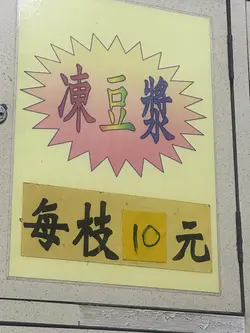 凍豆漿
每枝10元